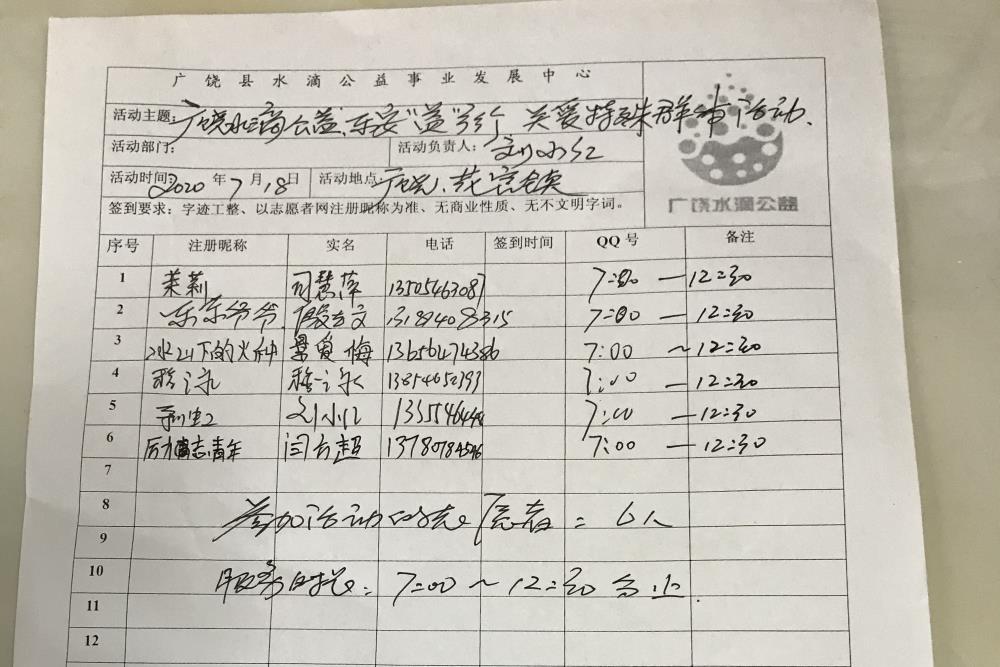 广饶县水滴公益事业发展中心
活动主题: 广饶水滴公益 乐安"益" 关爱特殊群体活动.
活动部门: 活动负责人: 刘小红
活动时间: 2020年7月18日 活动地点: 广饶 花官镇
签到要求：字迹工整、以志愿者网注册昵称为准、无商业性质、无不文明字词。
广饶水滴公益
序号 注册昵称 实名 电话 签到时间 QQ号 备注
1 茉莉 慧萍 13505463087 7:00 — 12:30
2 乐乐爷爷 7:00 — 12:30
3 冰山下的火种 梁爱梅 13656474386 7:00 ~ 12:30
4 13854652793 7:00 — 12:30
5 刘小红 7:00 — 12:30
6 闫方超 13780784546 7:00 — 12:30
7
8 参加活动的志愿者: 6人
9
10 服务时长: 7:00 ~ 12:30 为止.
11
12